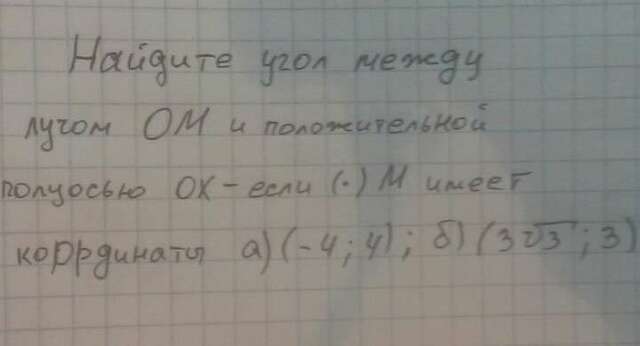 Найдите угол между
лучом ОМ и положительной
полуосью ОХ - если (·) М имеет
коррдинаты а) (-4; 4); б) (3√3; 3)